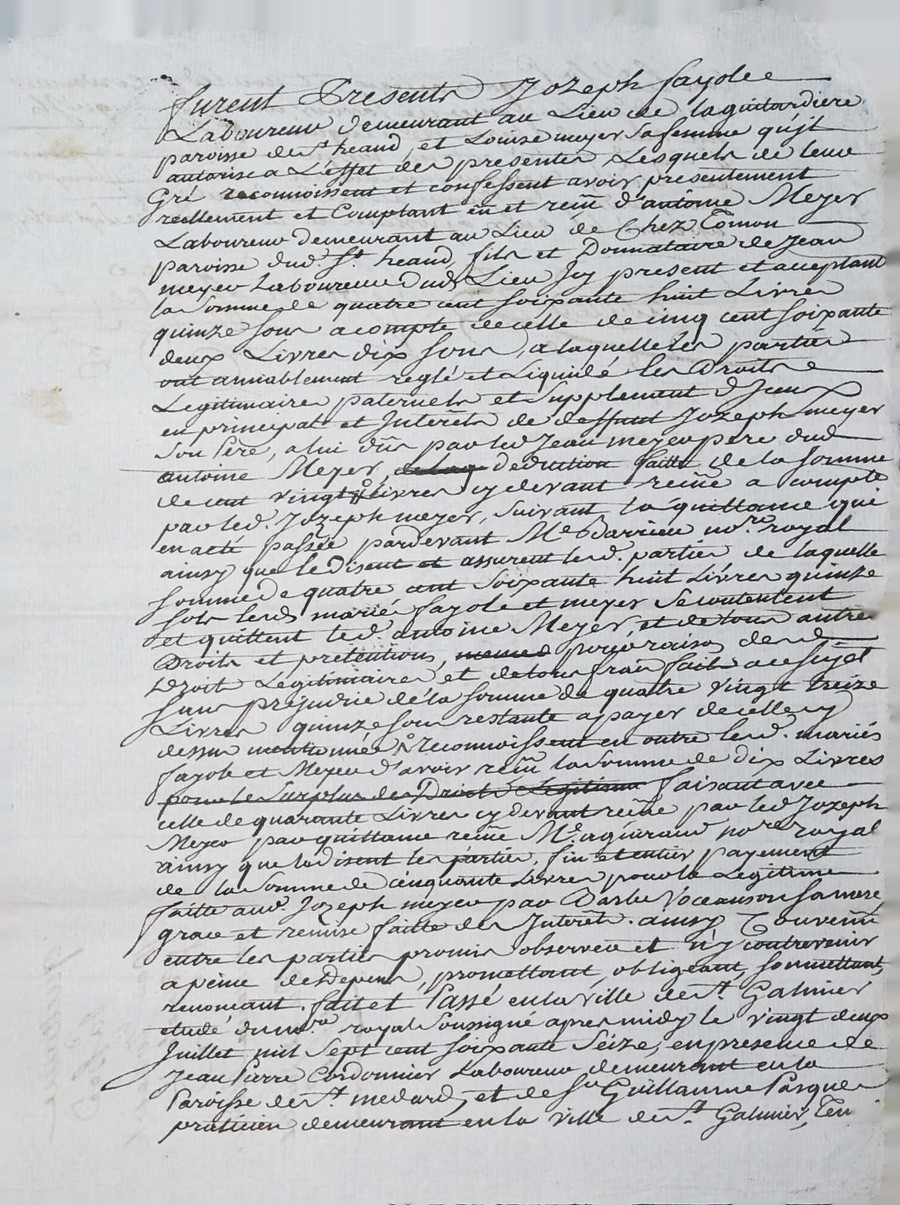 furent Presents Jozeph fayole
Laboureur demeurant au Lieu de laguitardiere
paroisse de st. heand, et Louise meyer Sa femme qu'jl
autorise a L'effet des presentes Lesquels de leur
Gré reconnoissent et confessent avoir presentement
reellement et Comptant eu et reçu d'antoine Meyer
Laboureur demeurant au Lieu de Chez
paroisse dud. St. heand, fils et Donnataire de Jean
meyer Laboureur dud. Lieu Jcy present et acceptant
la Somme de quatre cent Soixante huit Livres
quinze sous acompte de celle de cinq cent soixante
deux Livres dix sous, a laquelle les parties
ont amiablement reglé et Liquidé les Droits
Legitimaires paternels et Supplement d'Jceux
en principal et Jnterêts de deffunt Jozeph meyer
Son Père, a lui dûs par led. Jean meyer pere dud.
antoine Meyer, deduction faitte de la somme
de cent vingt livres cy devant reçue a compte
par led. Jozeph meyer, suivant la quittance qui
en a eté passée pardevant Me. no.re royal
ainsy que le Disent et assurent lesd. parties de laquelle
somme de quatre cent Soixante huit Livres quinze
sols lesd. mariés fayole et meyer Se contentent
et quittent led. antoine Meyer, et de tous autres
Droits et pretentions, pour raison desd.
Droit Legitimaires et de tous frais faits a ce sujet
Sans prejudice de la somme de quatre vingt treize
Livres quinze sous restante a payer de celle cy
dessus mentionnée, Reconnoissent en outre lesd. mariés
fayole et Meyer d'avoir reçu la Somme de Dix Livres
pour le Surplus des Droits Legitime faisant avec
celle de quarante Livres cy devant reçue par led. Jozeph
Meyer par quittance reçue Me. no.re royal
ainsy que le disent les parties, fin et entier payement
de la Somme de cinquante Livres pour la Legitime
faitte aud. Jozeph meyer par Barbe Sa mere
grace et remise faitte des Jnterêt. ainsy Convenu
entre les parties promis observer et n'y contrevenir
a peine des depens, promettant, obligeant, soumettant,
renonçant. fait et Passé en la ville de st. Galmier
etude du no.re royal Soussigné apres midy le vingt deux
Juillet mil Sept cent soixante Seize, en presence de
Jean Pierre Cordonnier Laboureur demeurant en la
Paroisse de st. medard, et de sr. Guillaume Pasquier
praticien demeurant en la ville de st. Galmier,